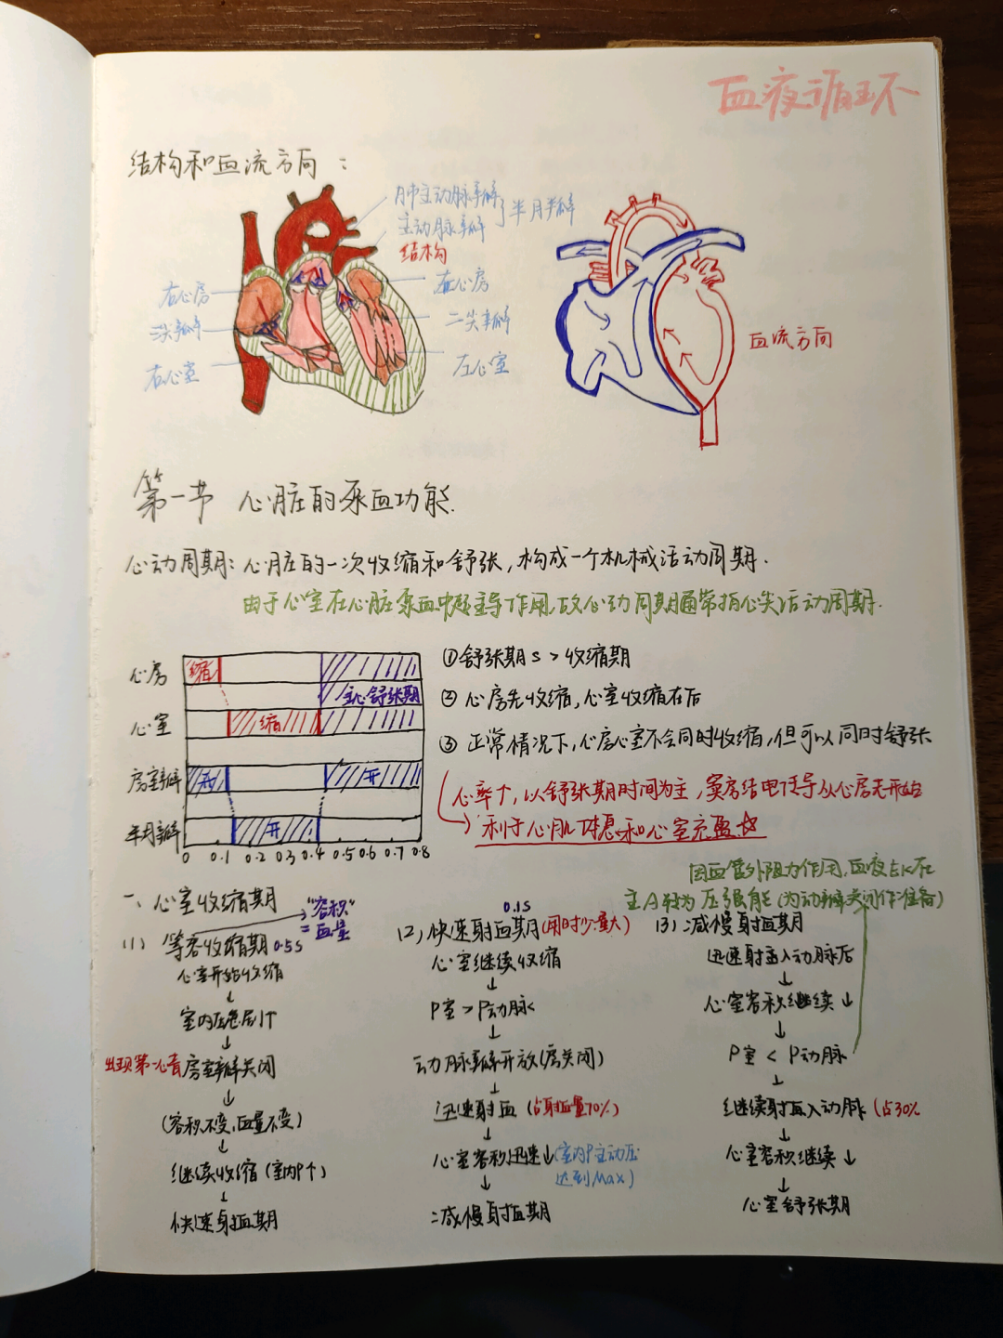 血液循环
结构和血流方向：
肺主动脉瓣
主动脉瓣
半月瓣
结构
右心房
左心房
三尖瓣
二尖瓣
右心室
左心室
血流方向
第一节 心脏的泵血功能.
心动周期：心脏的一次收缩和舒张，构成一个机械活动周期.
由于心室在心脏泵血中起主导作用，故心动周期通常指心室活动周期.
心房 缩
全心舒张期
心室 缩
房室瓣 开 开
半月瓣 开
0 0.1 0.2 0.3 0.4 0.5 0.6 0.7 0.8
①舒张期s>收缩期
②心房先收缩，心室收缩在后
③正常情况下，心房心室不会同时收缩，但可以同时舒张
心率↑，以舒张期时间为主，窦房结电传导从心房先开始
利于心肌休息和心室充盈
因血管外阻力作用，血液Ek在
主A转为压强能(为动瓣关闭作准备)
一、心室收缩期
"容积"
=血量
(1) 等容收缩期 0.5s
心室开始收缩
↓
室内压急剧↑
↓
出现第一心音 房室瓣关闭
↓
(容积不变，血量不变)
↓
继续收缩(室内P↑)
↓
快速射血期
0.1s
(2)快速射血期(用时少量大)
心室继续收缩
↓
P室>P动脉
↓
动脉瓣开放(房关闭)
↓
迅速射血(占射血量70%)
↓
心室容积迅速↓(室内P主动压
达到Max)
↓
减慢射血期
(3)减慢射血期
迅速射血入动脉后
↓
心室容积继续↓
↓
P室<P动脉
↓
继续射血入动脉(占30%
↓
心室容积继续↓
↓
心室舒张期